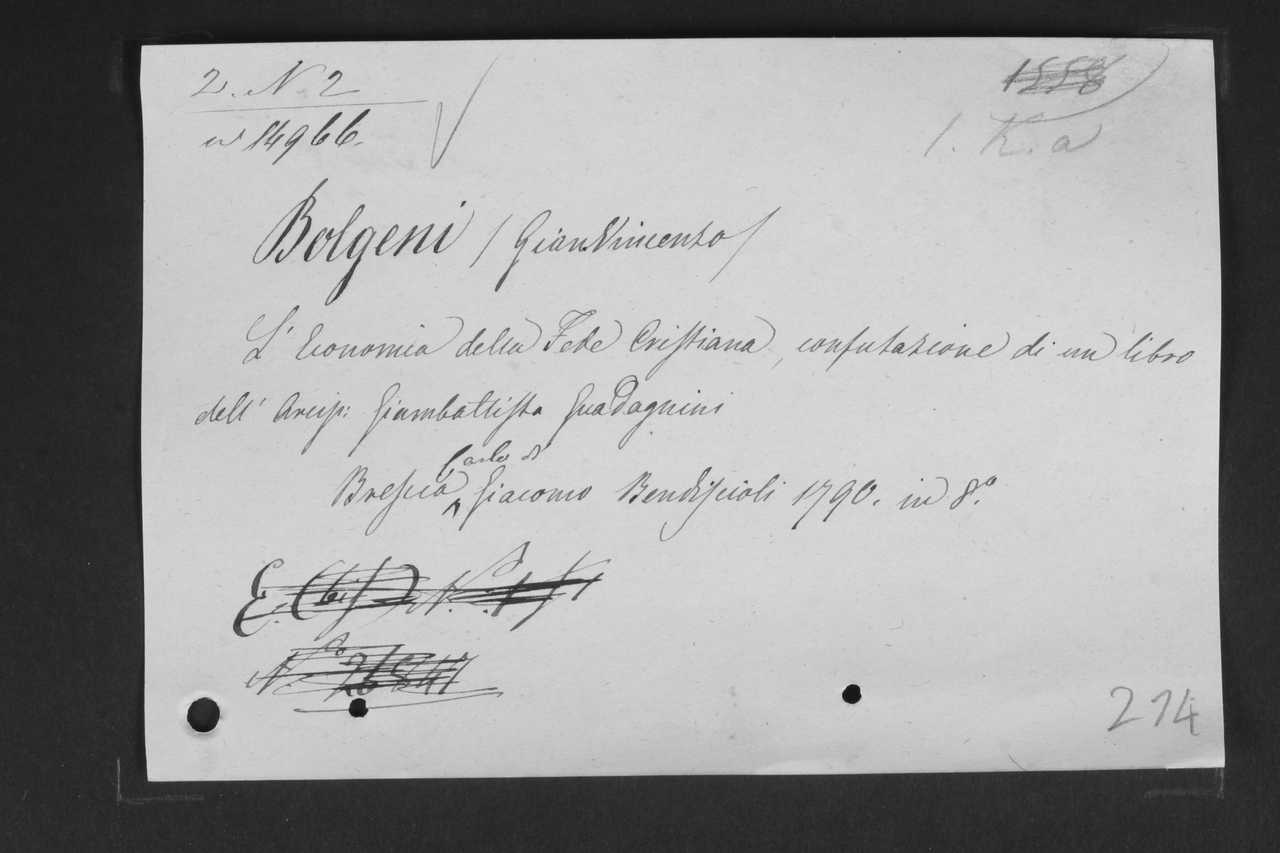 2. N. 2
n 14966.
1. K. a
Bolgeni / Gian Vincenzo /
L' Economia della Fede Cristiana, confutazione di un libro
dell' Arcip: Giambattista Guadagnini
Carlo di
Brescia Giacomo Bendiscioli 1790. in 8.º
E. (bis)
214